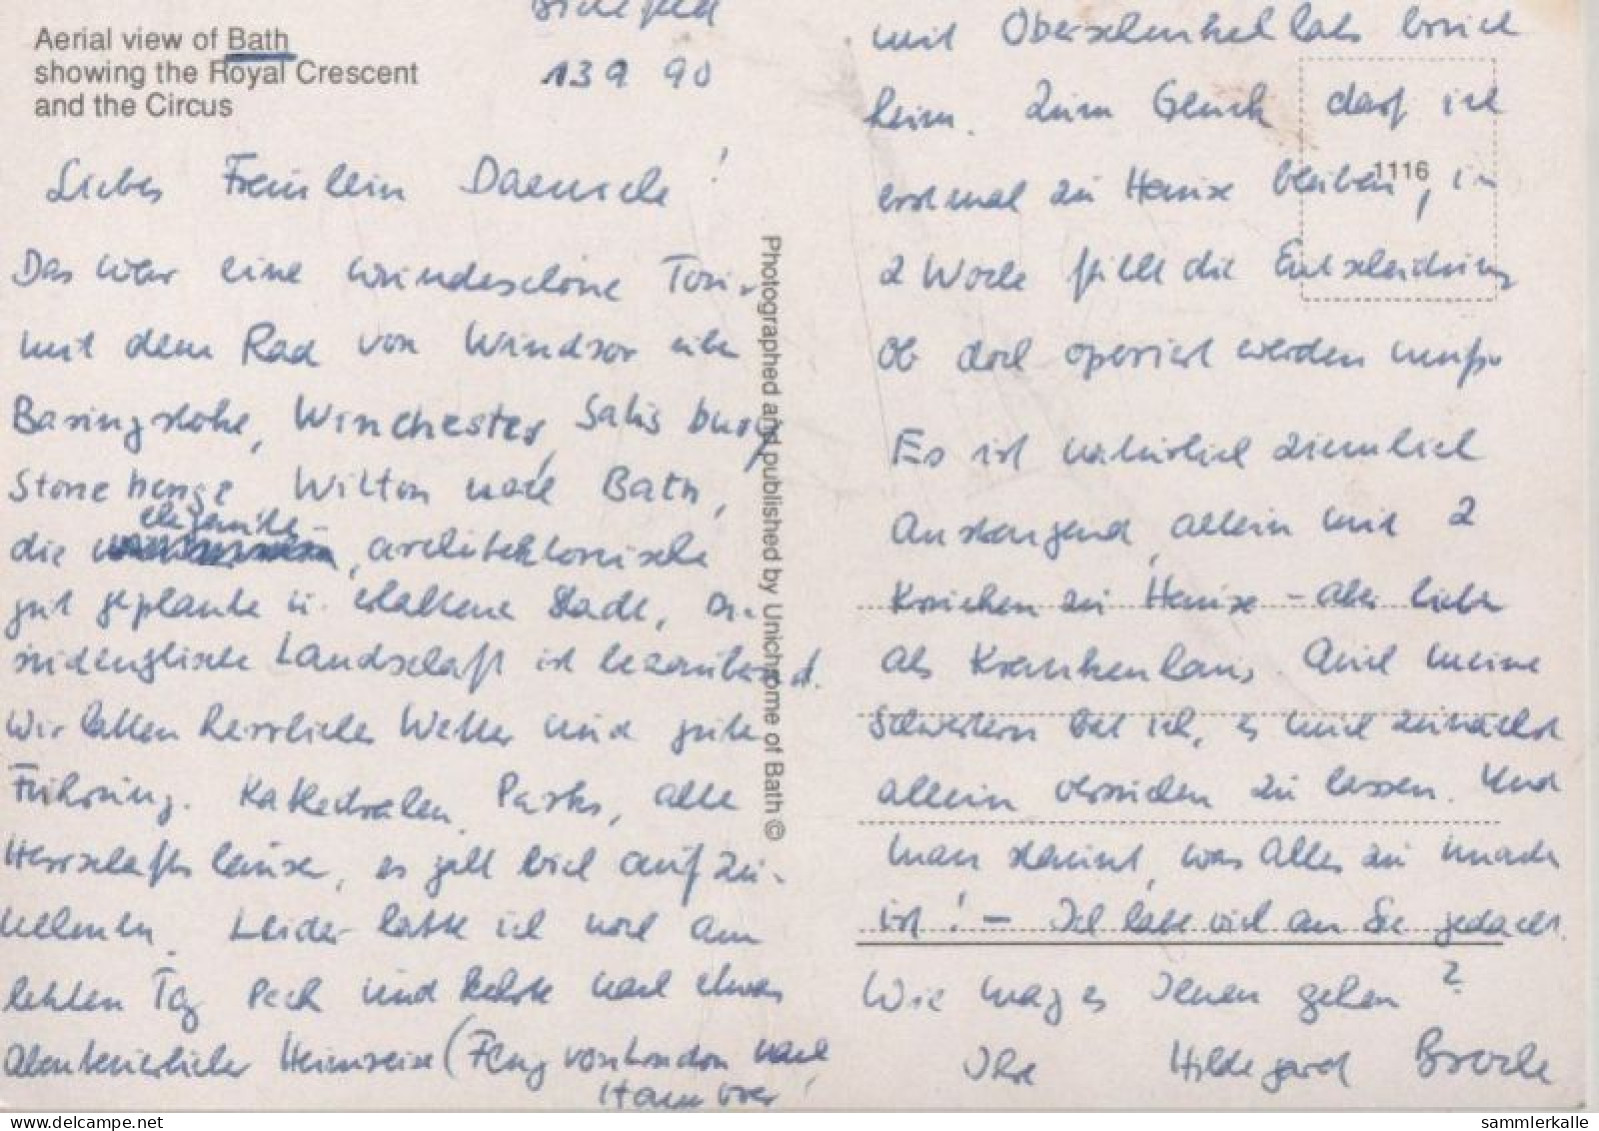 Aerial view of Bath
showing the Royal Crescent
and the Circus
Bielefeld
13 9 90
Liebes Fräulein
Das war eine wunderschöne Tour
mit dem Rad von Windsor über
Basingstoke, Winchester, Salisbury
Stonehenge Wilton nach Bath,
die elegante, architektonische
gut geplante u. erhaltene Stadt, Die
südenglische Landschaft ist bezaubernd.
Wir hatten herrliches Wetter und gute
Führung. Kathedralen, Parks, alte
Herrschaftshäuser, es galt viel aufzu-
nehmen. Leider hatte ich noch am
letzten Tag Pech und kehrte nach etwas
abenteuerlicher Heimreise (Flug von London nach
Hannover
Photographed and published by Unichrome of Bath ©
mit Oberschenkelhalsbruch
heim. Zum Glück darf ich
erstmal zu Hause bleiben, in
1116
2 Woche fällt die Entscheidung
ob doch operiert werden muß.
Es ist natürlich ziemlich
anstrengend, allein mit 2
Krücken zu Hause - aber lieber
als Krankenhaus. Auch meine
Schwestern bat ich, es mich zunächst
allein versuchen zu lassen. Und
man staunt, was alles zu machen
ist! - Ich habe viel an Sie gedacht.
Wie mag es Ihnen gehen?
Ihre Hildegard
www.delcampe.net
sammlerkalle